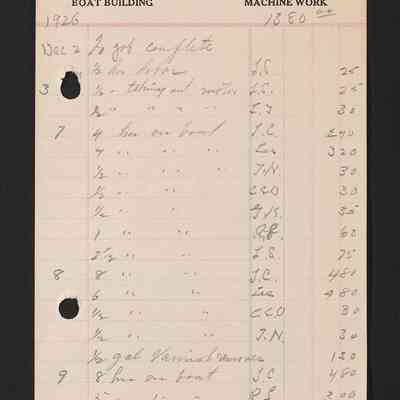 BOAT BUILDING MACHINE WORK
1926 1380 00
Dec 2 To job complete
½ hr labor L.S. 25
3 ½ " taking out motor L.S. 25
½ " " " " L.J 30
7 4 hrs on boat J.C. 240
4 " " " Les 320
½ " " " J.N. 30
½ " " " CCO 30
½ " " " 35
1 " " R.P. 60
2½ " " L.S. 75
8 8 " " J.C. 480
6 " " Les 480
½ " " CCO 30
½ " " J.N. 30
½ gal Varnish remover 150
9 8 hrs on boat J.C 480
" " 300